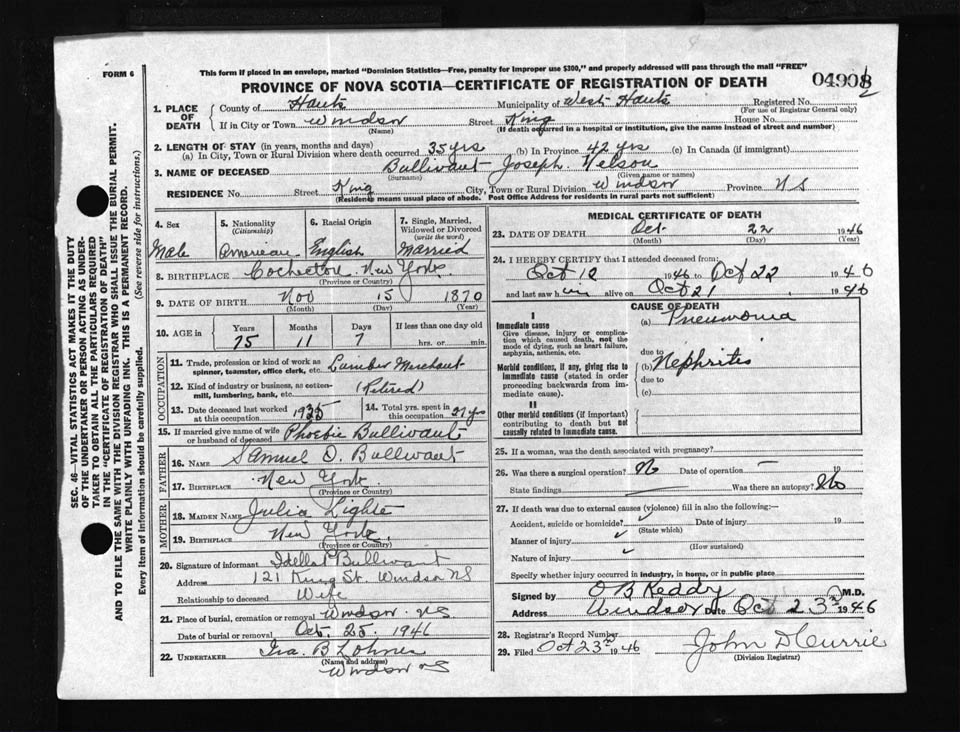 FORM 6
This form if placed in an envelope, marked "Dominion Statistics—Free, penalty for improper use $300," and properly addressed will pass through the mail "FREE"
PROVINCE OF NOVA SCOTIA—CERTIFICATE OF REGISTRATION OF DEATH 04908
SEC. 46—VITAL STATISTICS ACT MAKES IT THE DUTY
OF THE UNDERTAKER OR PERSON ACTING AS UNDER-
TAKER TO OBTAIN ALL THE PARTICULARS REQUIRED
IN THE "CERTIFICATE OF REGISTRATION OF DEATH"
AND TO FILE THE SAME WITH THE DIVISION REGISTRAR WHO SHALL ISSUE THE BURIAL PERMIT.
WRITE PLAINLY WITH UNFADING INK. THIS IS A PERMANENT RECORD.
Every item of information should be carefully supplied. (See reverse side for instructions.)
1. PLACE OF DEATH
County of Hants Municipality of West Hants Registered No.
(For use of Registrar General only)
If in City or Town Windsor Street King House No.
(Name) (If death occurred in a hospital or institution, give the name instead of street and number)
2. LENGTH OF STAY (in years, months and days)
(a) In City, Town or Rural Division where death occurred 35 yrs (b) In Province 42 yrs (c) In Canada (if immigrant)
3. NAME OF DECEASED Bullivant Joseph Nelson
(Surname) (Given name or names)
RESIDENCE No. Street King City, Town or Rural Division Windsor Province NS
(Residence means usual place of abode. Post Office Address for residents in rural parts not sufficient)
4. Sex 5. Nationality (Citizenship) 6. Racial Origin 7. Single, Married, Widowed or Divorced (write the word)
Male American English Married
8. BIRTHPLACE Cochecton New York
(Province or Country)
9. DATE OF BIRTH Nov 15 1870
(Month) (Day) (Year)
10. AGE in Years Months Days If less than one day old
75 11 7 hrs. or min.
OCCUPATION
11. Trade, profession or kind of work as spinner, teamster, office clerk, etc. Lumber Merchant
12. Kind of industry or business, as cotton-mill, lumbering, bank, etc. (Retired)
13. Date deceased last worked at this occupation 1935 14. Total yrs. spent in this occupation yrs
15. If married give name of wife or husband of deceased Phoebie Bullivant
FATHER
16. NAME Samuel D. Bullivant
17. BIRTHPLACE New York
(Province or Country)
MOTHER
18. MAIDEN NAME Julia
19. BIRTHPLACE New York
(Province or Country)
20. Signature of informant Bullivant
Address 121 King St. Windsor NS
Relationship to deceased Wife
21. Place of burial, cremation or removal Windsor NS
Date of burial or removal Oct. 25. 1946
22. UNDERTAKER Ira. B Lohnes
(Name and address)
Windsor NS
MEDICAL CERTIFICATE OF DEATH
23. DATE OF DEATH Oct 22 1946
(Month) (Day) (Year)
24. I HEREBY CERTIFY that I attended deceased from:
Oct 12 1946 to Oct 22 1946
and last saw him alive on Oct 21 1946
CAUSE OF DEATH
I
Immediate cause (a) Pneumonia
Give disease, injury or complication which caused death, not the mode of dying, such as heart failure, asphyxia, asthenia, etc.
due to
Morbid conditions, if any, giving rise to immediate cause (stated in order proceeding backwards from immediate cause). (b) Nephritis
due to
(c)
II
Other morbid conditions (if important) contributing to death but not causally related to immediate cause.
25. If a woman, was the death associated with pregnancy?
26. Was there a surgical operation? No Date of operation – 19
State findings — Was there an autopsy? No
27. If death was due to external causes (violence) fill in also the following:—
Accident, suicide or homicide? Date of injury 19
(State which)
Manner of injury
(How sustained)
Nature of injury
Specify whether injury occurred in industry, in home, or in public place
Signed by O B Keddy M.D.
Address Windsor Date Oct 23rd 1946
28. Registrar's Record Number
29. Filed Oct 23rd 1946 John D Currie
(Division Registrar)